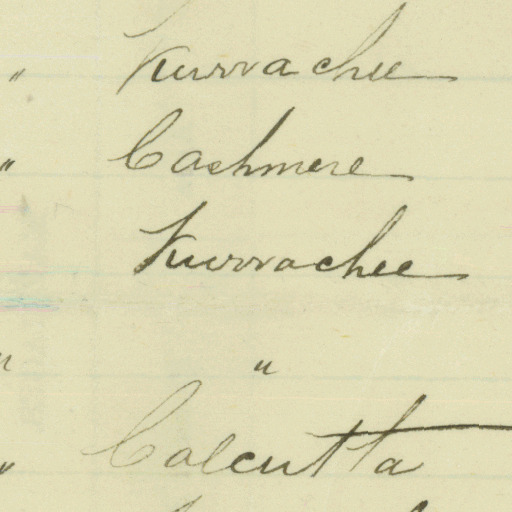 " Kurrachee
" Cashmere
Kurrachee
" "
" Calcutta